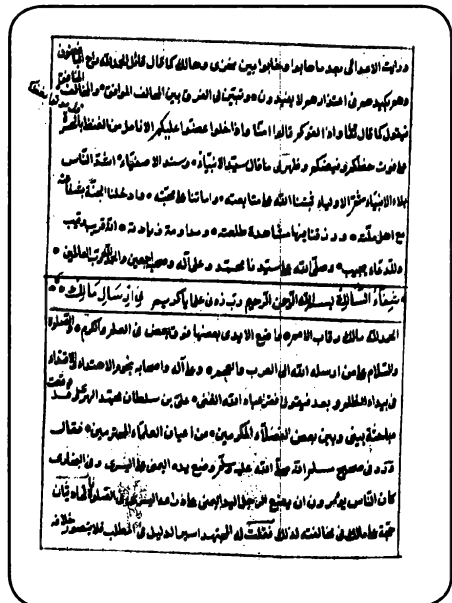 ورايت الاعدا بعد ما صابوا وخابوا بين وهالك كما قال قائل الحمد لله
وهو في اعتذار هم لا يفيدون وتبين لي الفرق بين المحالف الموافق والمخالف المنافق
فيقول كما قال تعالى واذا لقوكم قالوا امنا واذا خلوا عضوا عليكم الانامل من الغيظ بالحسرة
على فوت وظهر لي ما قال سيد الانبياء وسند الاصفياء اشد الناس
بلاء الانبياء ثم الاولياء فثبتنا الله على متابعته واماتنا على محبته وادخلنا الجنة بشفاعته
مع اهل ملته ورزقنا فيها مشاهدة طلعته ومداومة زيادته انه قريب
وللدعاء مجيب وصلى الله على سيدنا محمد وعلى آله وصحبه اجمعين والحمد لله رب العالمين
شفاء السالك بسم الله الرحمن الرحيم رب زدني علما ياكريم في ارسال مالك
الحمد لله مالك رقاب الامم الايدي بعضها فوق بعض في العلم والكرم والصلوة
والسلام على من ارسله الله الى العرب والعجم وعلى آله واصحابه نجوم الاهتداء والاقتداء
في بيداء الظلم وبعد فيقول افقر عباد الله الغني علي بن سلطان محمد الهروي قد وقعت
مباحثة بيني وبين بعض الفضلاء المكرمين من اعيان العلماء المحترمين فقال
قد ورد في صحيح مسلم انه صلى الله عليه وسلم وضع يده اليمنى على اليسرى وفي البخاري
كان الناس يؤمرون ان يضع الرجل اليد اليمنى على ذراعه اليسرى في الصلوة فالحديثان
حجة على مالك في مخالفته لذلك فقلت له المجتهد اسير الدليل في المطلب فلا يتصور خلافه